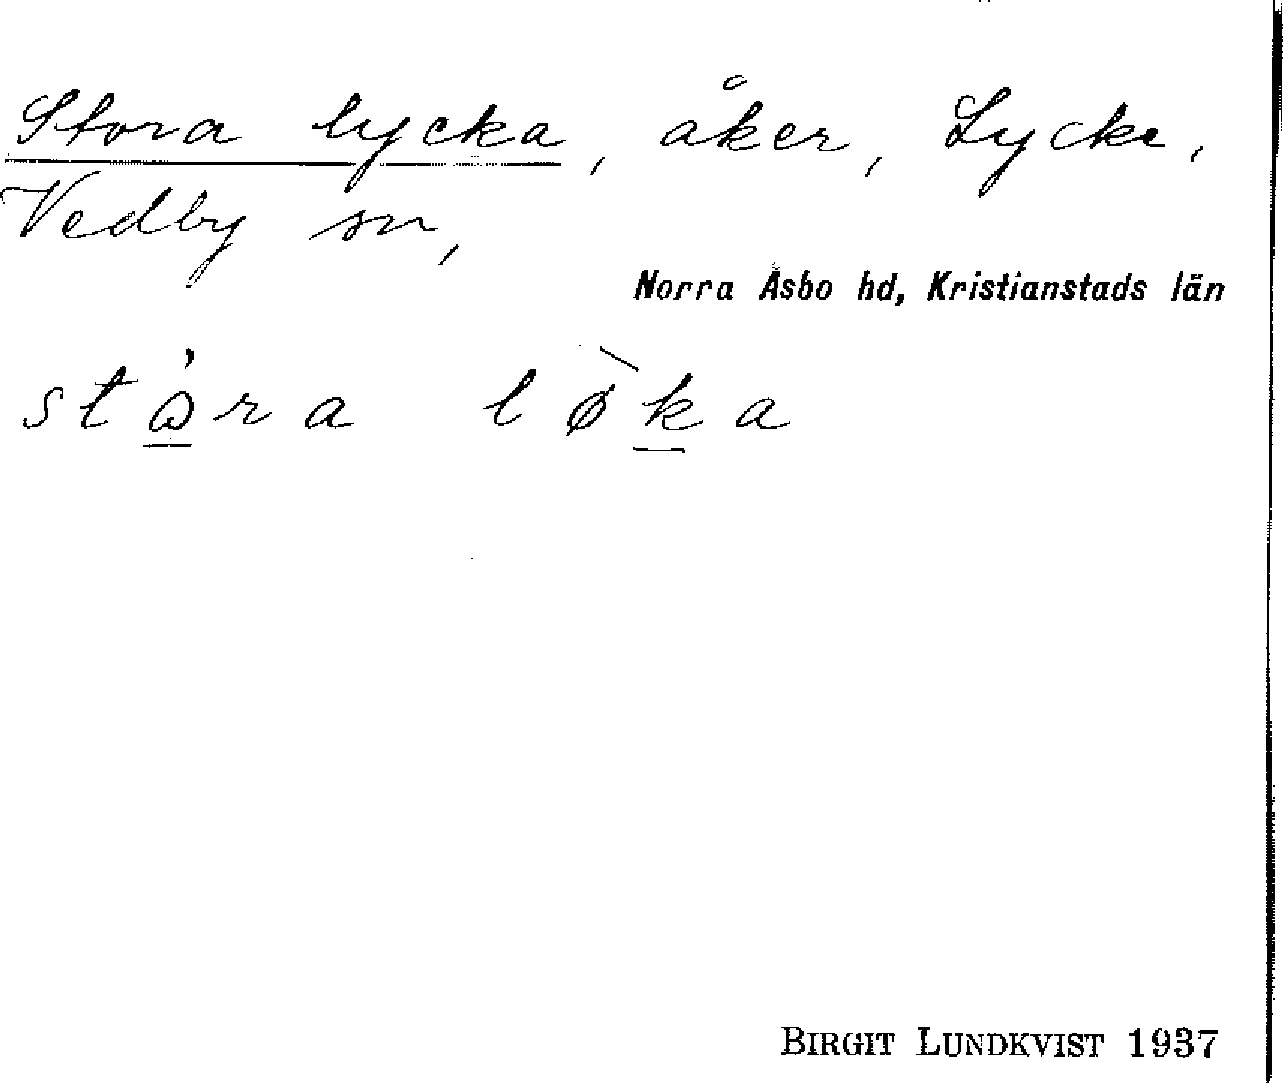 Stora lycka, åker, Lycke,
Vedby sn,
Norra Åsbo hd, Kristianstads län
stɷ̀ra løka
BIRGIT LUNDKVIST 1937